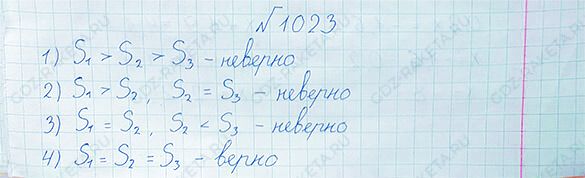 №1023
1) S₁ > S₂ > S₃ - неверно
2) S₁ > S₂, S₂ = S₃ - неверно
3) S₁ = S₂, S₂ < S₃ - неверно
4) S₁ = S₂ = S₃ - верно
GDZ-RAKETA.RU